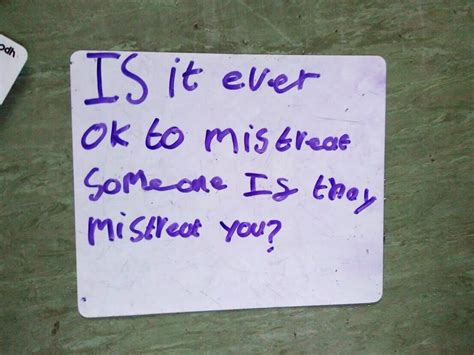 odh
IS it ever
ok to mistreat
someone Is thay
mistreat you?